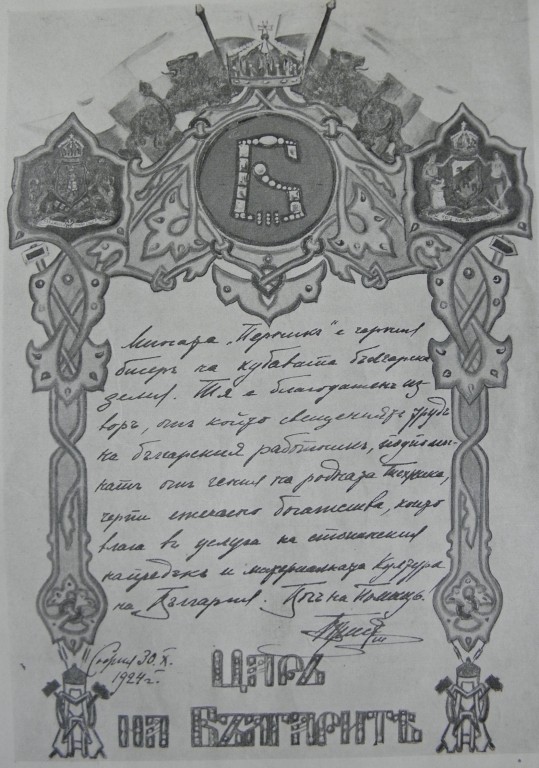 Б
Мината „Перникъ" е черния
бисеръ на хубавата българска
земя. Тя е благодатенъ из
воръ, отъ който свещениятъ трудъ
на българския работникъ, подпома-
гатъ отъ гения на родната техника,
черпи ежечасно богатства, които
влага въ услуга на стопанския
напредъкъ и материалната култура
на България. Богъ на помощь.
София 30. X.
1924 г.
III
Царь
на Българитѣ